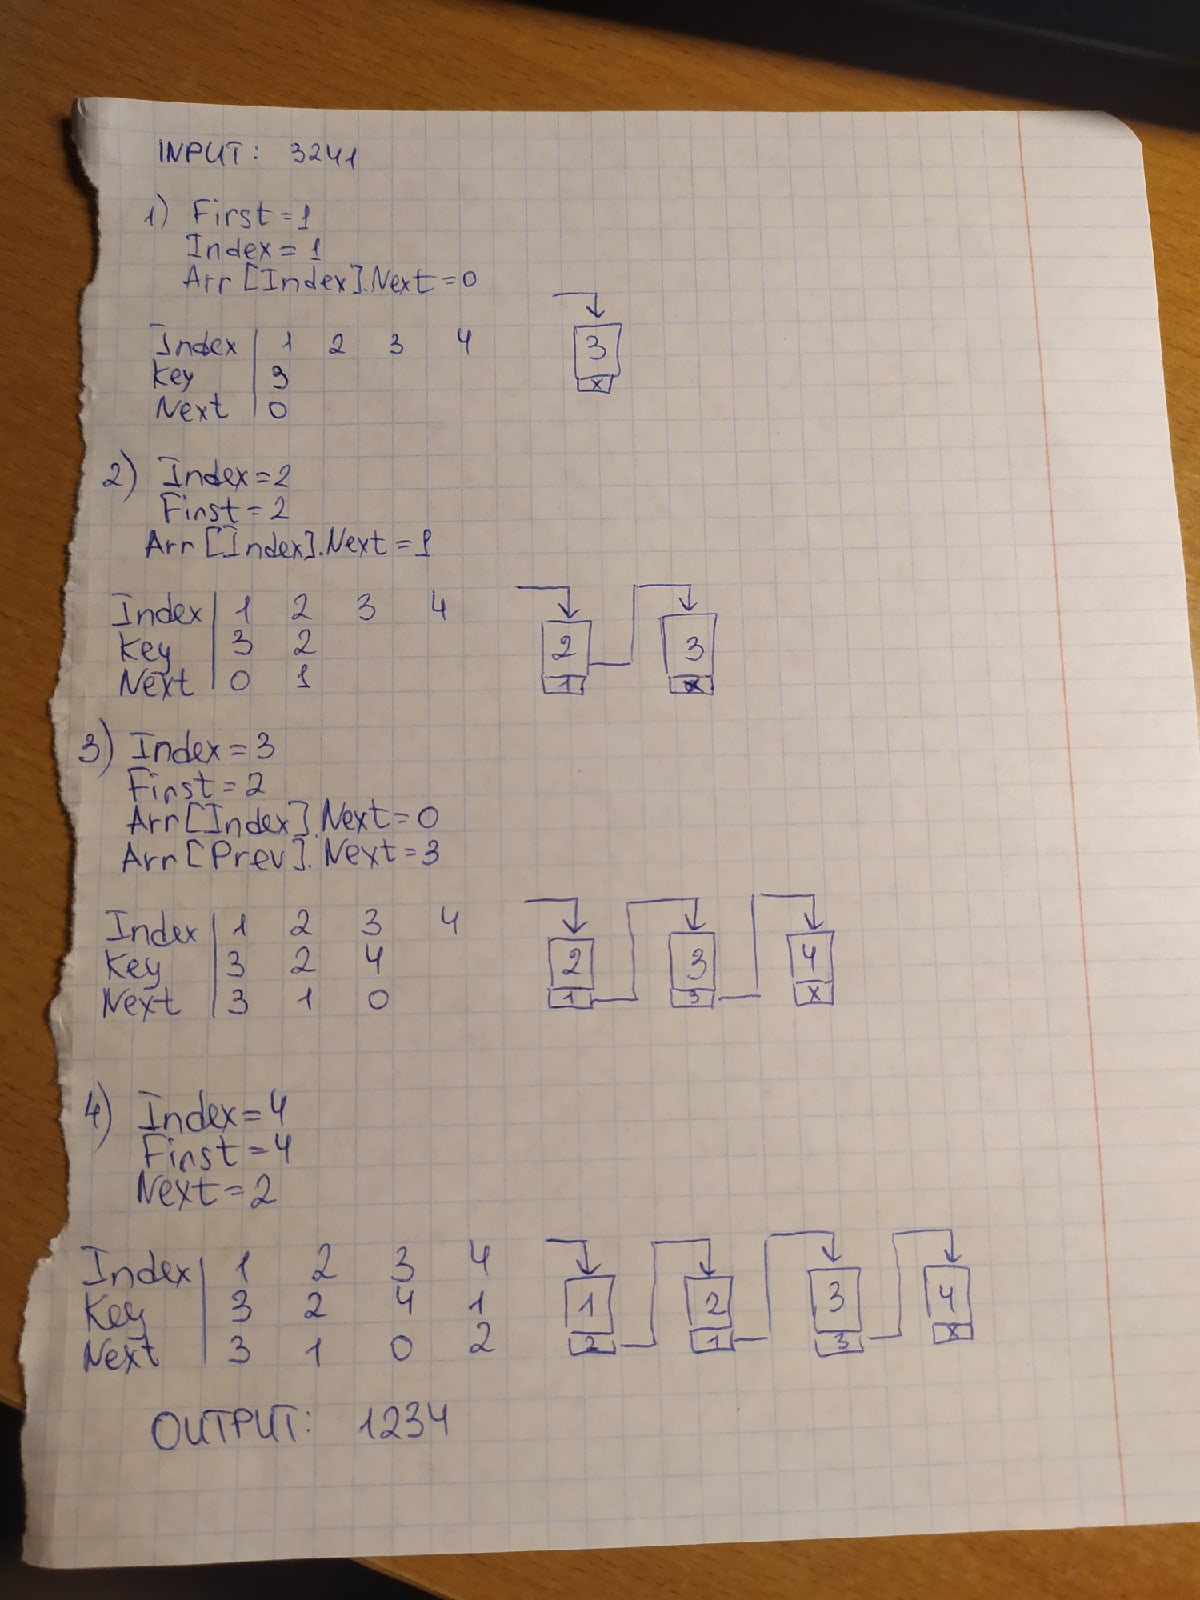 INPUT: 3241
1) First = 1
Index = 1
Arr[Index].Next = 0
Index | 1 2 3 4
Key | 3
Next | 0
3
x
2) Index = 2
First = 2
Arr[Index].Next = 1
Index | 1 2 3 4
Key | 3 2
Next | 0 1
2 3
1 x
3) Index = 3
First = 2
Arr[Index].Next = 0
Arr[Prev].Next = 3
Index | 1 2 3 4
Key | 3 2 4
Next | 3 1 0
2 3 4
1 3 x
4) Index = 4
First = 4
Next = 2
Index | 1 2 3 4
Key | 3 2 4 1
Next | 3 1 0 2
1 2 3 4
2 1 3 x
OUTPUT: 1234